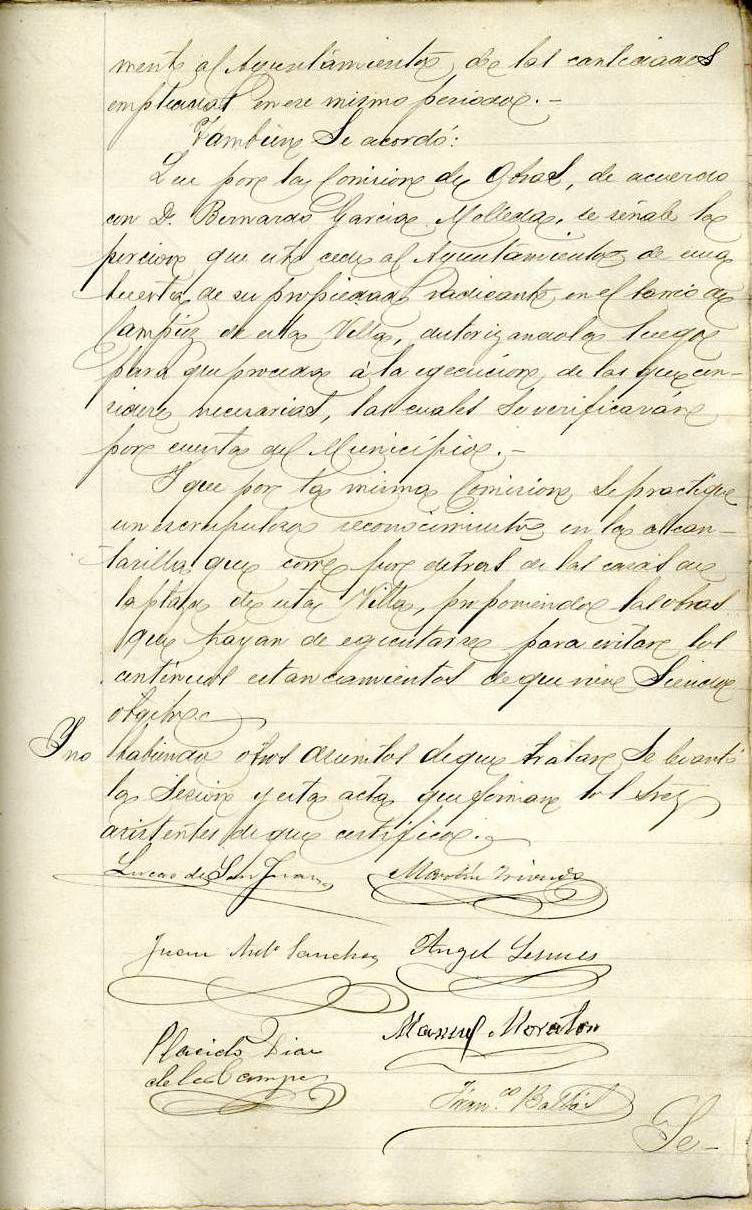 mente al Ayuntamiento, de las cantidades
empleadas en ese mismo periodo. -
Tambien Se acordó:
Que por la Comision de Obras, de acuerdo
con D. Bernardo Garcia Molleda, se señale la
porcion que este cede al Ayuntamiento de una
huerta de su propiedad radicante en el barrio de
de esta Villa, autorizandola luego
para que proceda á la egecucion de las que con-
sidere necesarias, las cuales se verificarán
por cuenta del Municipio. -
Y que por la misma Comision se practique
un escrupuloso reconocimiento en la alcan-
tarilla que corre por detras de las casas de
la plaza de esta Villa, proponiendo las obras
que hayan de egecutarse para evitar los
continuos estancamientos de que viene Siendo
objeto.
Y no habiendo otros asuntos de que tratar Se levantó
la Sesion y esta acta que firman los Sres
asistentes de que certifico. -
Lucas de San Juan
Juan Antº Sanchez
Angel
Placido Diaz
Manuel Moraton
de la Campa
Franco
Se-